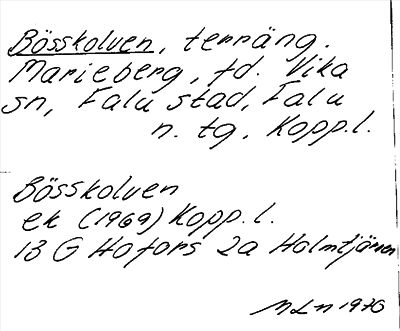 Bösskolven, terräng.
Marieberg, fd. Vika
sn, Falu stad, Falu
n. tg, Kopp.l.
Bösskolven
ek (1969) Kopp. l.
13 G Hofors 2a Holmtjärnen
MLn 1970